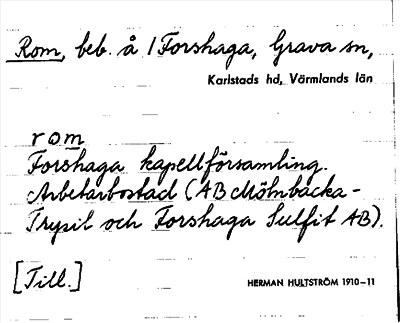 Rom, beb. å 1 Forshaga, Grava sn,
Karlstads hd, Värmlands län
rom
Forshaga kapellförsamling.
Arbetarbostad (AB Mölnbacka-
Trysil och Forshaga Sulfit AB).
[Till.]
HERMAN HULTSTRÖM 1910-11